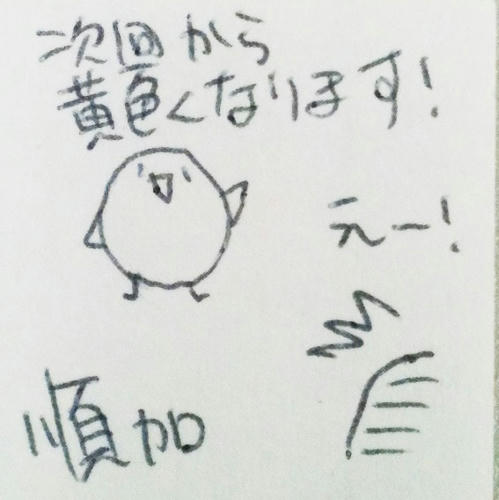 次回から
黄色くなります!
えー!
順加